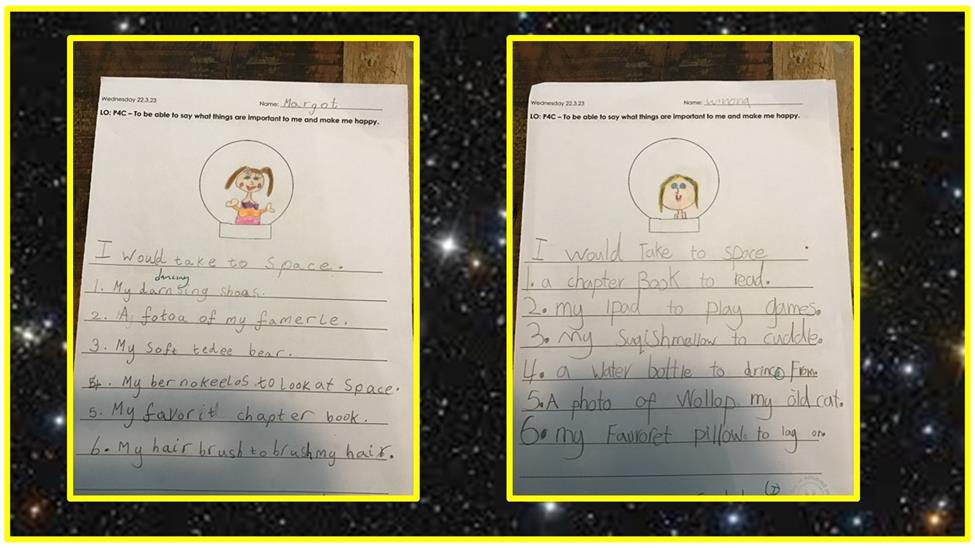 Wednesday 22.3.23
Name: Margot
LO: P4C – To be able to say what things are important to me and make me happy.
I would take to space.
dancing
1. My darnsing shoas.
2. A fotoa of my famerle.
3. My soft tedee bear.
4. My bernokeelos to look at space.
5. My favorit chapter book.
6. My hair brush to brush my hair.
Wednesday 22.3.23
Name: Winona
LO: P4C – To be able to say what things are important to me and make me happy.
I would Take to space.
1. a chapter Book to read.
2. my Ipad to play games.
3. My Suqishmallow to cuddle.
4. a water bottle to drinc From.
5. A photo of Wollop my old cat.
6. my Favroret pillow to lag on.